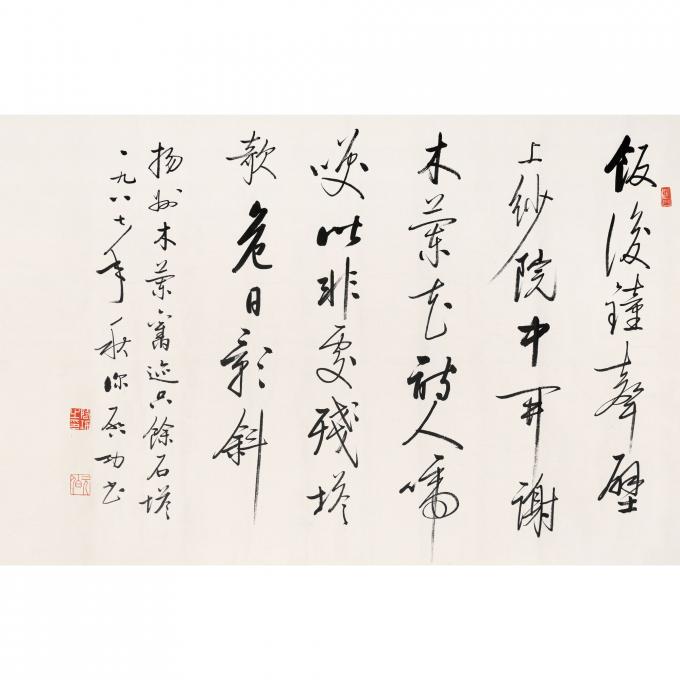 飯後鐘聲壁
上紗院中開謝
木蘭花詩人啼
咲皆非處殘塔
欹危日影斜
揚州木蘭舊迹只餘石塔
一九八七年秋深啟功書